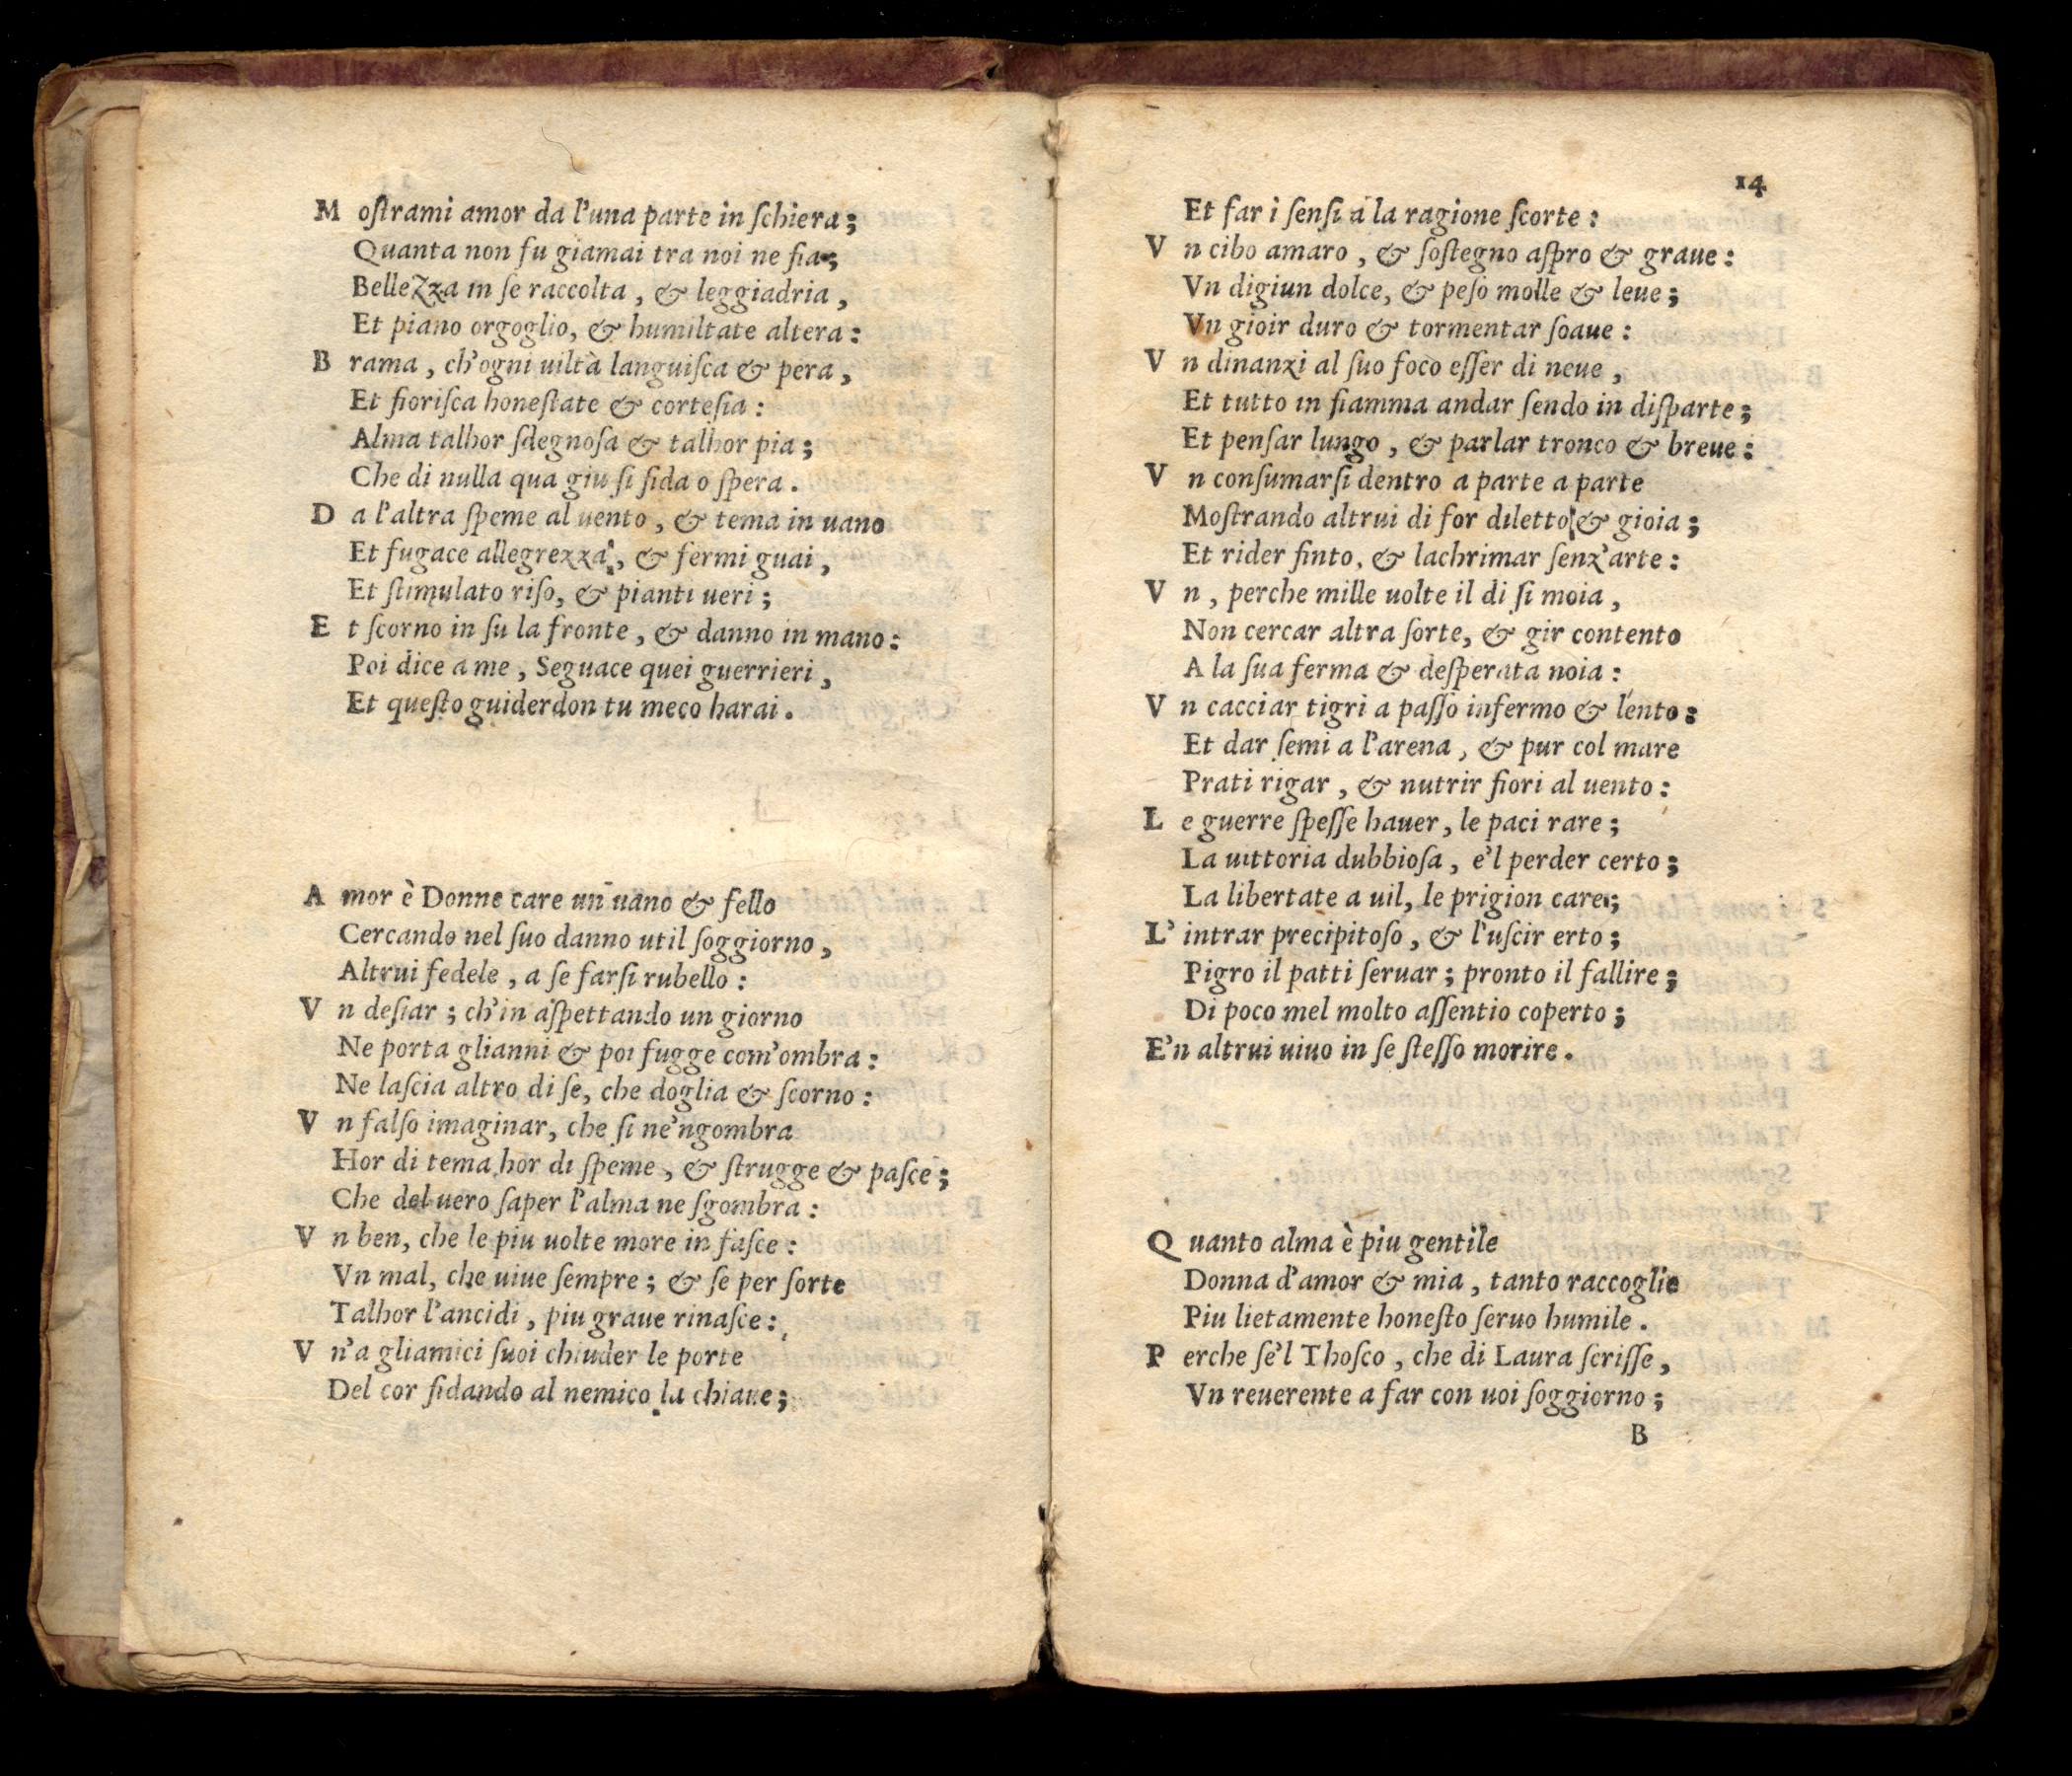 Mostrami amor da l'una parte in schiera;
Quanta non fu giamai tra noi ne fia;
Bellezza in se raccolta, & leggiadria,
Et piano orgoglio, & humiltate altera:
Brama, ch'ogni uiltà languisca & pera,
Et fiorisca honestate & cortesia:
Alma talhor sdegnosa & talhor pia;
Che di nulla qua giu si fida o spera.
Da l'altra speme al uento, & tema in uano
Et fugace allegrezza, & fermi guai,
Et stimulato riso, & pianti ueri;
Et scorno in su la fronte, & danno in mano:
Poi dice a me, Seguace quei guerrieri,
Et questo guiderdon tu meco harai.
Amor è Donne care un uano & fello
Cercando nel suo danno util soggiorno,
Altrui fedele, a se farsi rubello:
Vn desiar; ch'in aspettando un giorno
Ne porta glianni & poi fugge com'ombra:
Ne lascia altro di se, che doglia & scorno:
Vn falso imaginar, che si ne'ngombra
Hor di tema hor di speme, & strugge & pasce;
Che del uero saper l'alma ne sgombra:
Vn ben, che le piu uolte more in fasce:
Vn mal, che uiue sempre; & se per sorte
Talhor l'ancidi, piu graue rinasce:
Vn'a gliamici suoi chiuder le porte
Del cor fidando al nemico la chiaue;
14
Et far i sensi a la ragione scorte:
Vn cibo amaro, & sostegno aspro & graue:
Vn digiun dolce, & peso molle & leue;
Vn gioir duro & tormentar soaue:
Vn dinanzi al suo foco esser di neue,
Et tutto in fiamma andar sendo in disparte;
Et pensar lungo, & parlar tronco & breue:
Vn consumarsi dentro a parte a parte
Mostrando altrui di for diletto & gioia;
Et rider finto, & lachrimar senz'arte:
Vn, perche mille uolte il di si moia,
Non cercar altra sorte, & gir contento
A la sua ferma & desperata noia:
Vn cacciar tigri a passo infermo & lento:
Et dar semi a l'arena, & pur col mare
Prati rigar, & nutrir fiori al uento:
Le guerre spesse hauer, le paci rare;
La uittoria dubbiosa, e'l perder certo;
La libertate a uil, le prigion care;
L'intrar precipitoso, & l'uscir erto;
Pigro il patti seruar; pronto il fallire;
Di poco mel molto assentio coperto;
E'n altrui uiuo in se stesso morire.
Quanto alma è piu gentile
Donna d'amor & mia, tanto raccoglie
Piu lietamente honesto seruo humile.
Perche se'l Thosco, che di Laura scrisse,
Vn reuerente a far con uoi soggiorno;
B